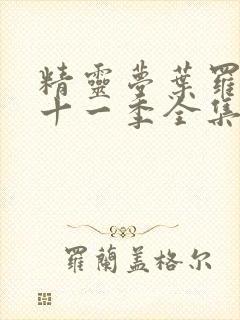 精靈夢葉羅
十一季全集
羅蘭蓋格尔